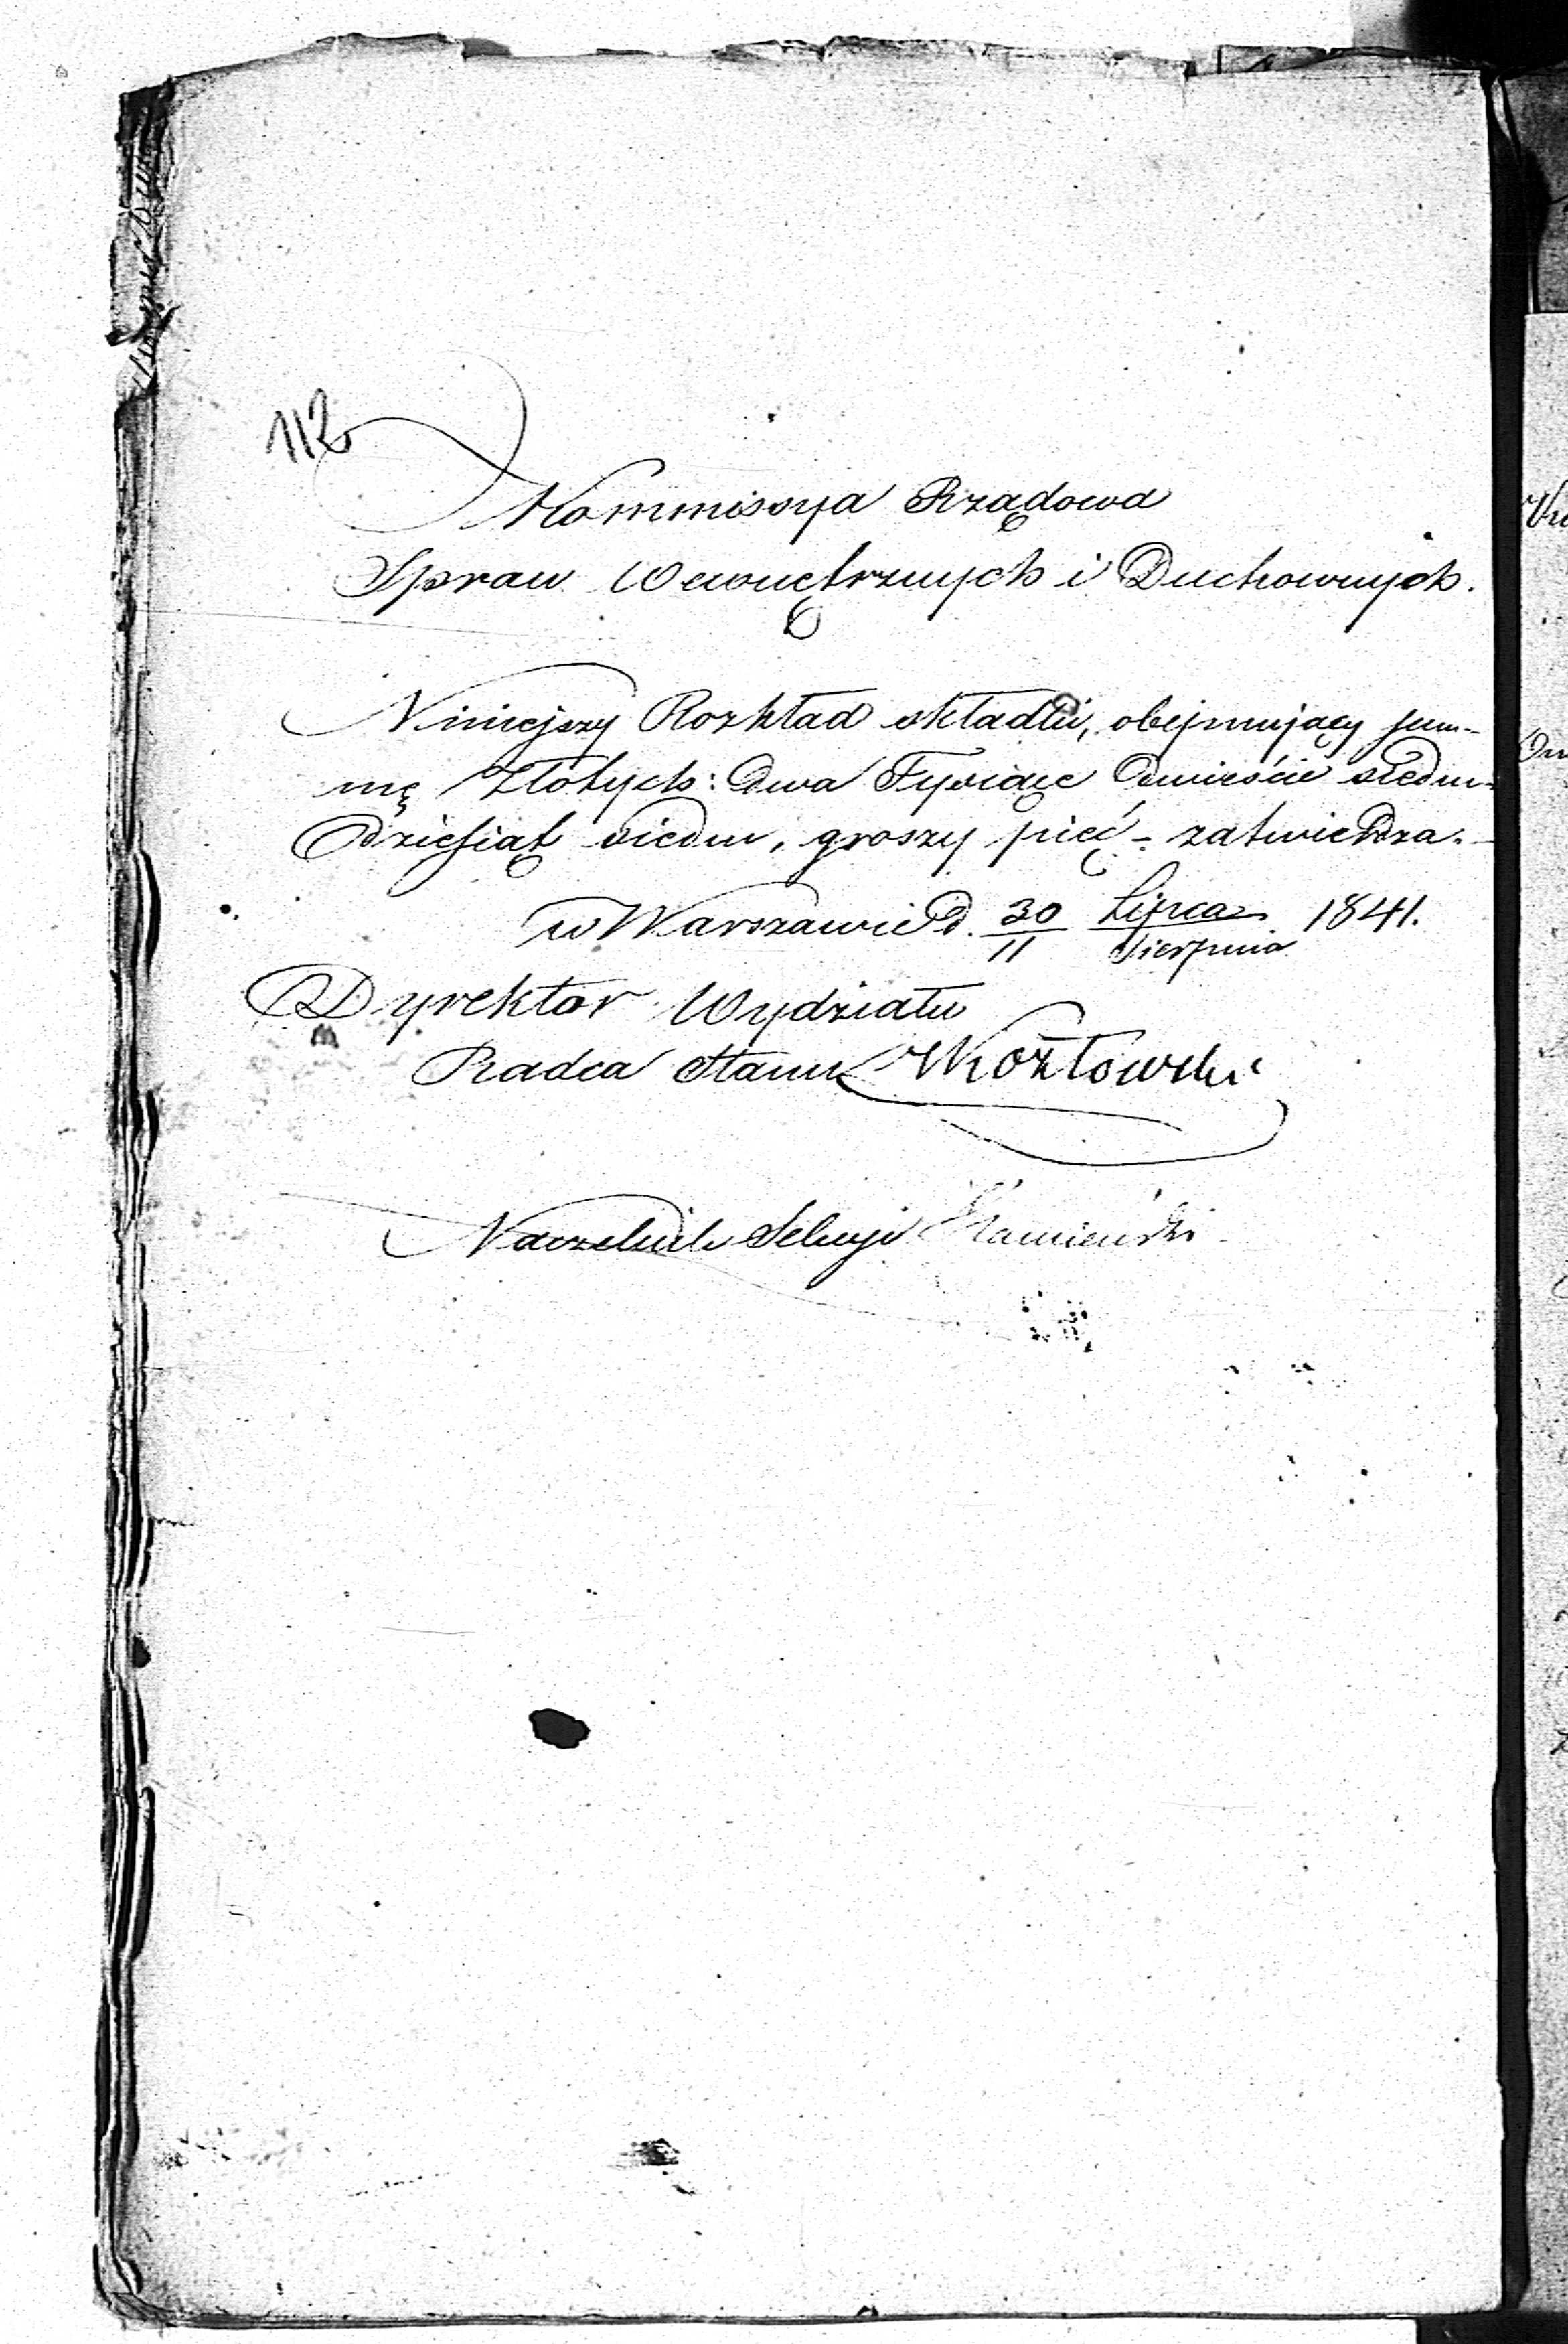 112
Kommissya Rządowa
Spraw Wewnętrznych i Duchownych.
Niniejszy Rozkład składki, obejmujący sum-
mę Złotych: dwa Tysiące dwieście siedm-
dziesiąt siedm, groszy pięć - zatwierdza.
w Warszawie d. 30/11 Lipca/Sierpnia 1841.
Dyrektor Wydziału
Radca Stanu Kozłowski
Naczelnik Sekcyi Kamieński